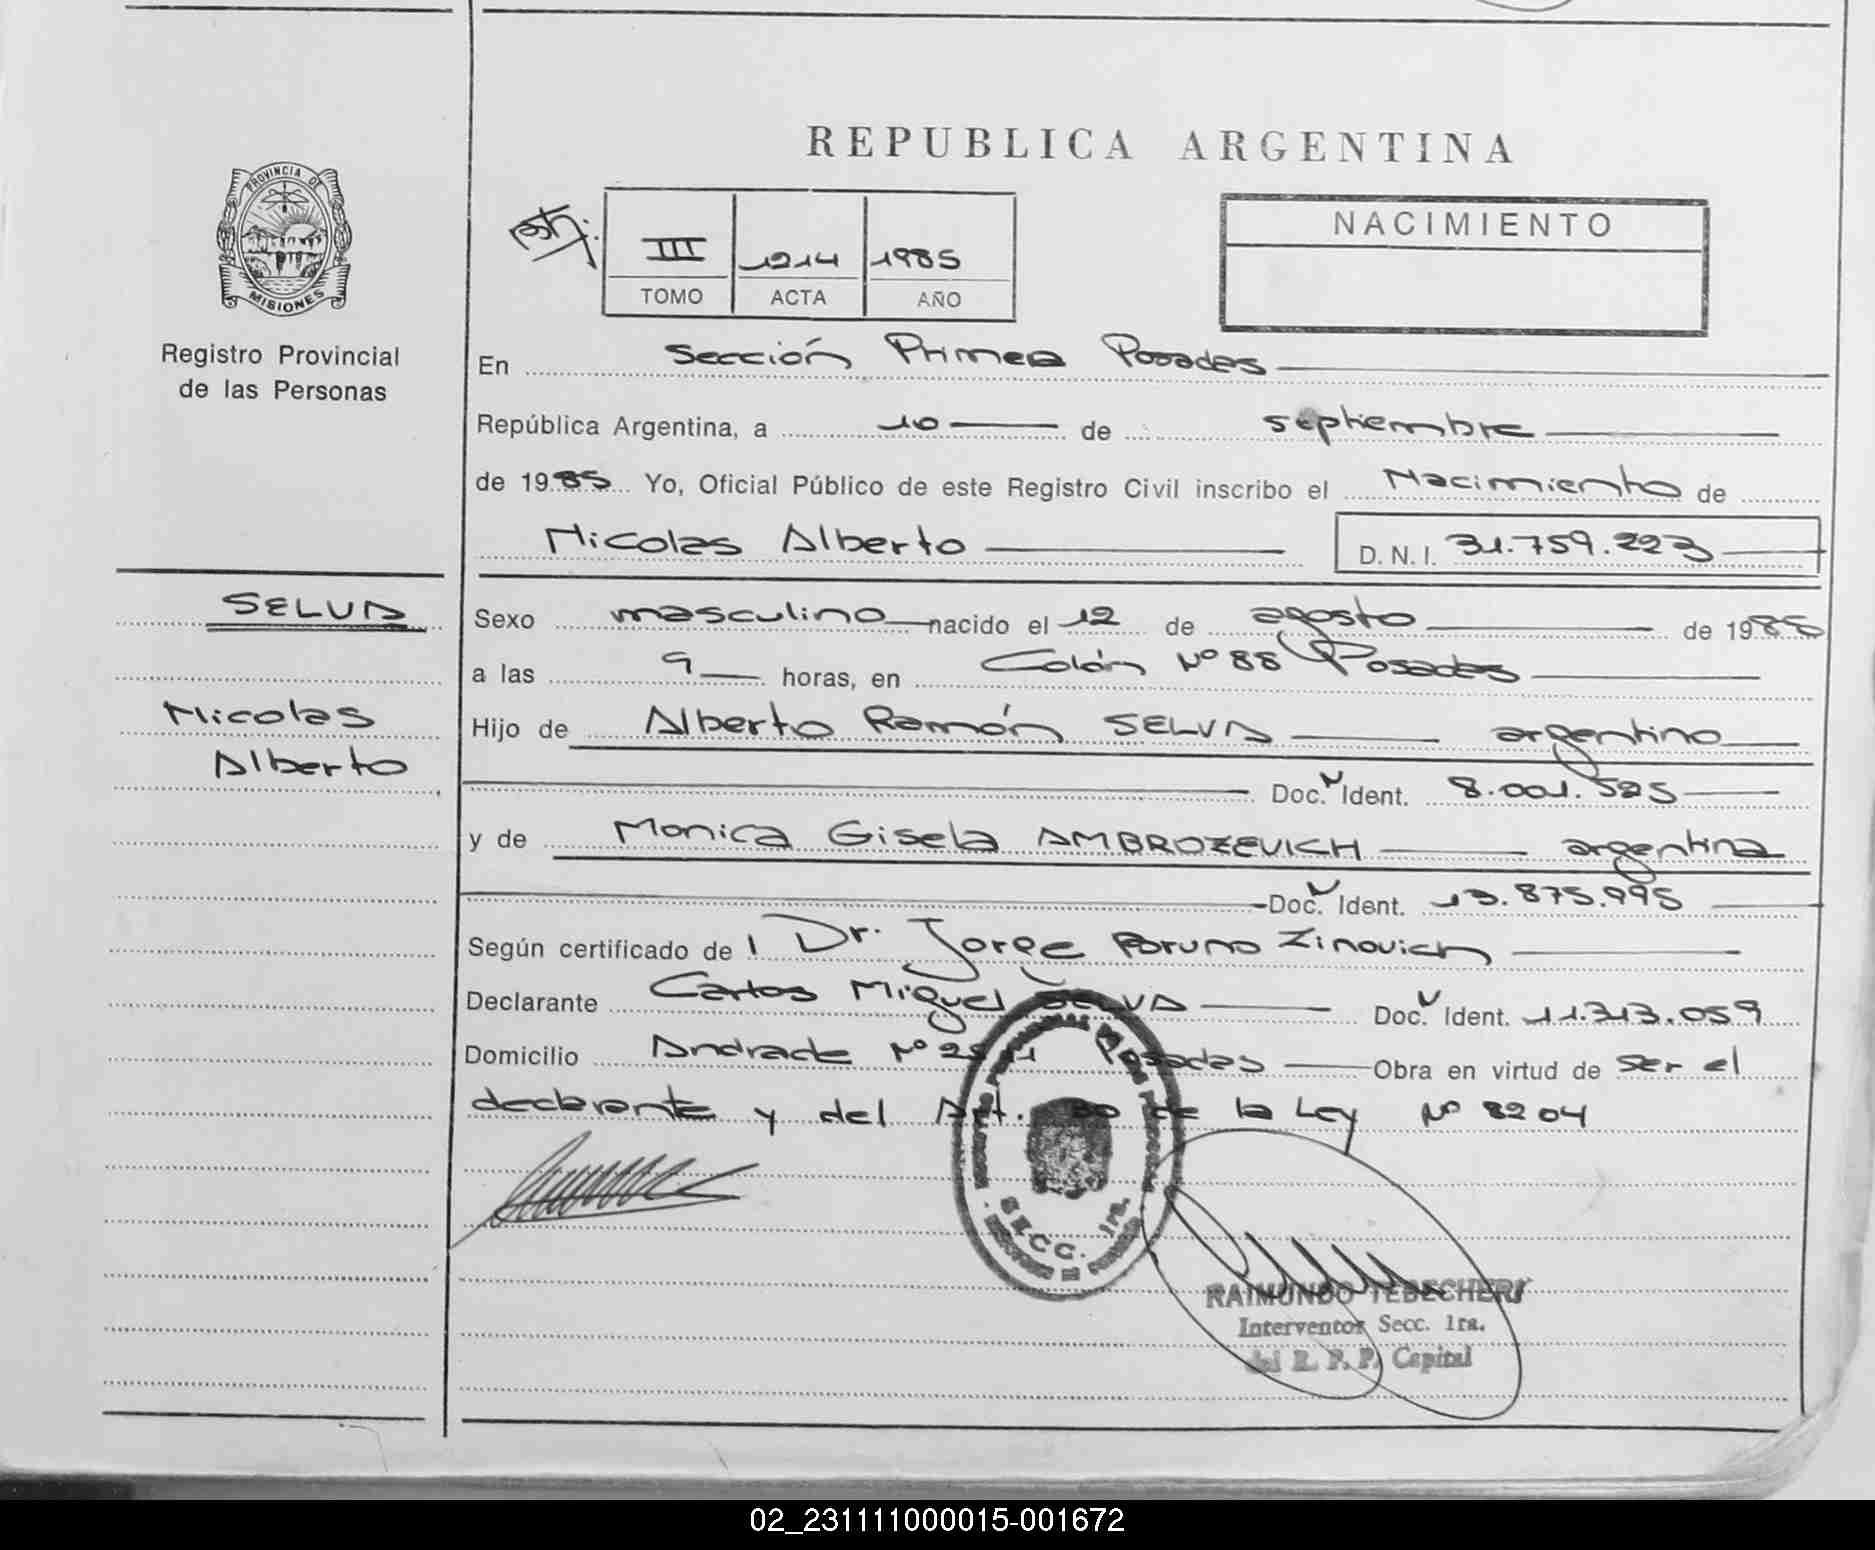 REPUBLICA ARGENTINA
PROVINCIA DE
MISIONES
Registro Provincial
de las Personas
III 1214 1985
TOMO ACTA AÑO
NACIMIENTO
En Sección Primera Posadas
República Argentina, a 10 de septiembre
de 1985 Yo, Oficial Público de este Registro Civil inscribo el Nacimiento de
Nicolas Alberto D.N.I. 31.759.223
SELVA
Nicolas
Alberto
Sexo masculino nacido el 12 de agosto de 1985
a las 9 horas, en Colón Nº 88 Posadas
Hijo de Alberto Ramón SELVA argentino
Doc. Ident. 8.001.585
y de Monica Gisela AMBROZEVICH argentina
Doc. Ident. 13.875.995
Según certificado de l Dr. Jorge Bruno Zinovich
Declarante Carlos Miguel SELVA Doc. Ident. 11.313.059
Domicilio Andrade Nº Posadas Obra en virtud de ser el
declarante y del Art. de la Ley Nº 8204
SECC. 1ra.
RAIMUNDO TEBECHERI
Interventor Secc. 1ra.
del R. P. P. Capital
02_231111000015-001672